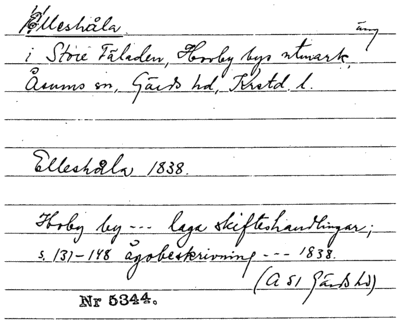 Elleshåla. äng
i Store Täladen, Horby bys utmark,
Åsums sn, Gärds hd, Krstd. l.
Elleshåla 1838.
Horby by --- laga skifteshandlingar;
s. 131-148 ägobeskrivning --- 1838.
(A 51 Gärds hd)
Nr 5344.